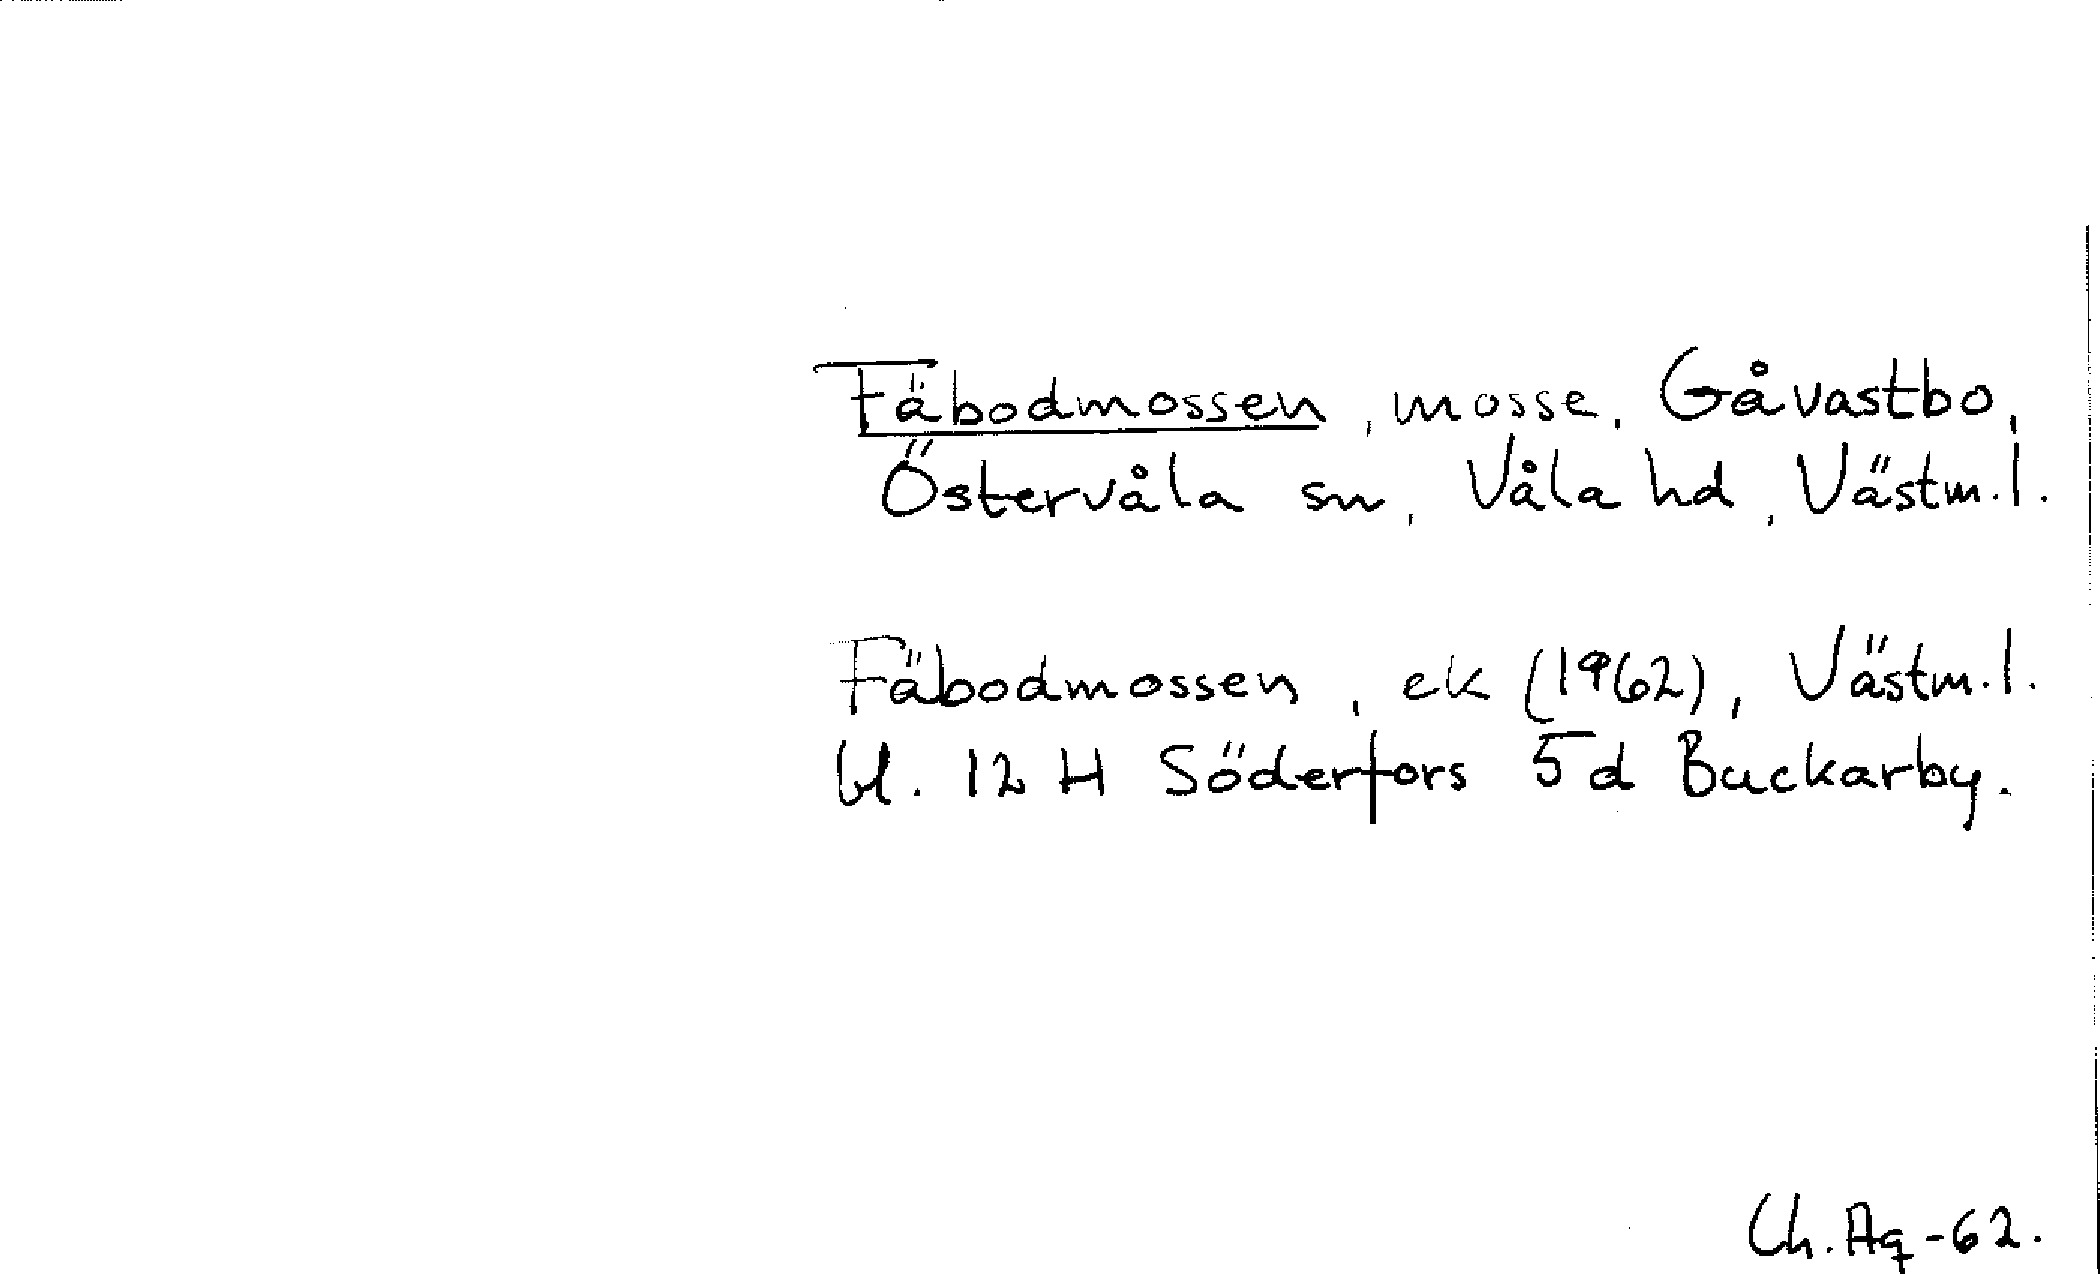 Fäbodmossen, mosse, Gåvastbo,
Östervåla sn, Våla hd, Västm.l.
Fäbodmossen, ek (1962), Västm.l.
bl. 12 H Söderfors 5d Buckarby.
Ch.Aq-62.